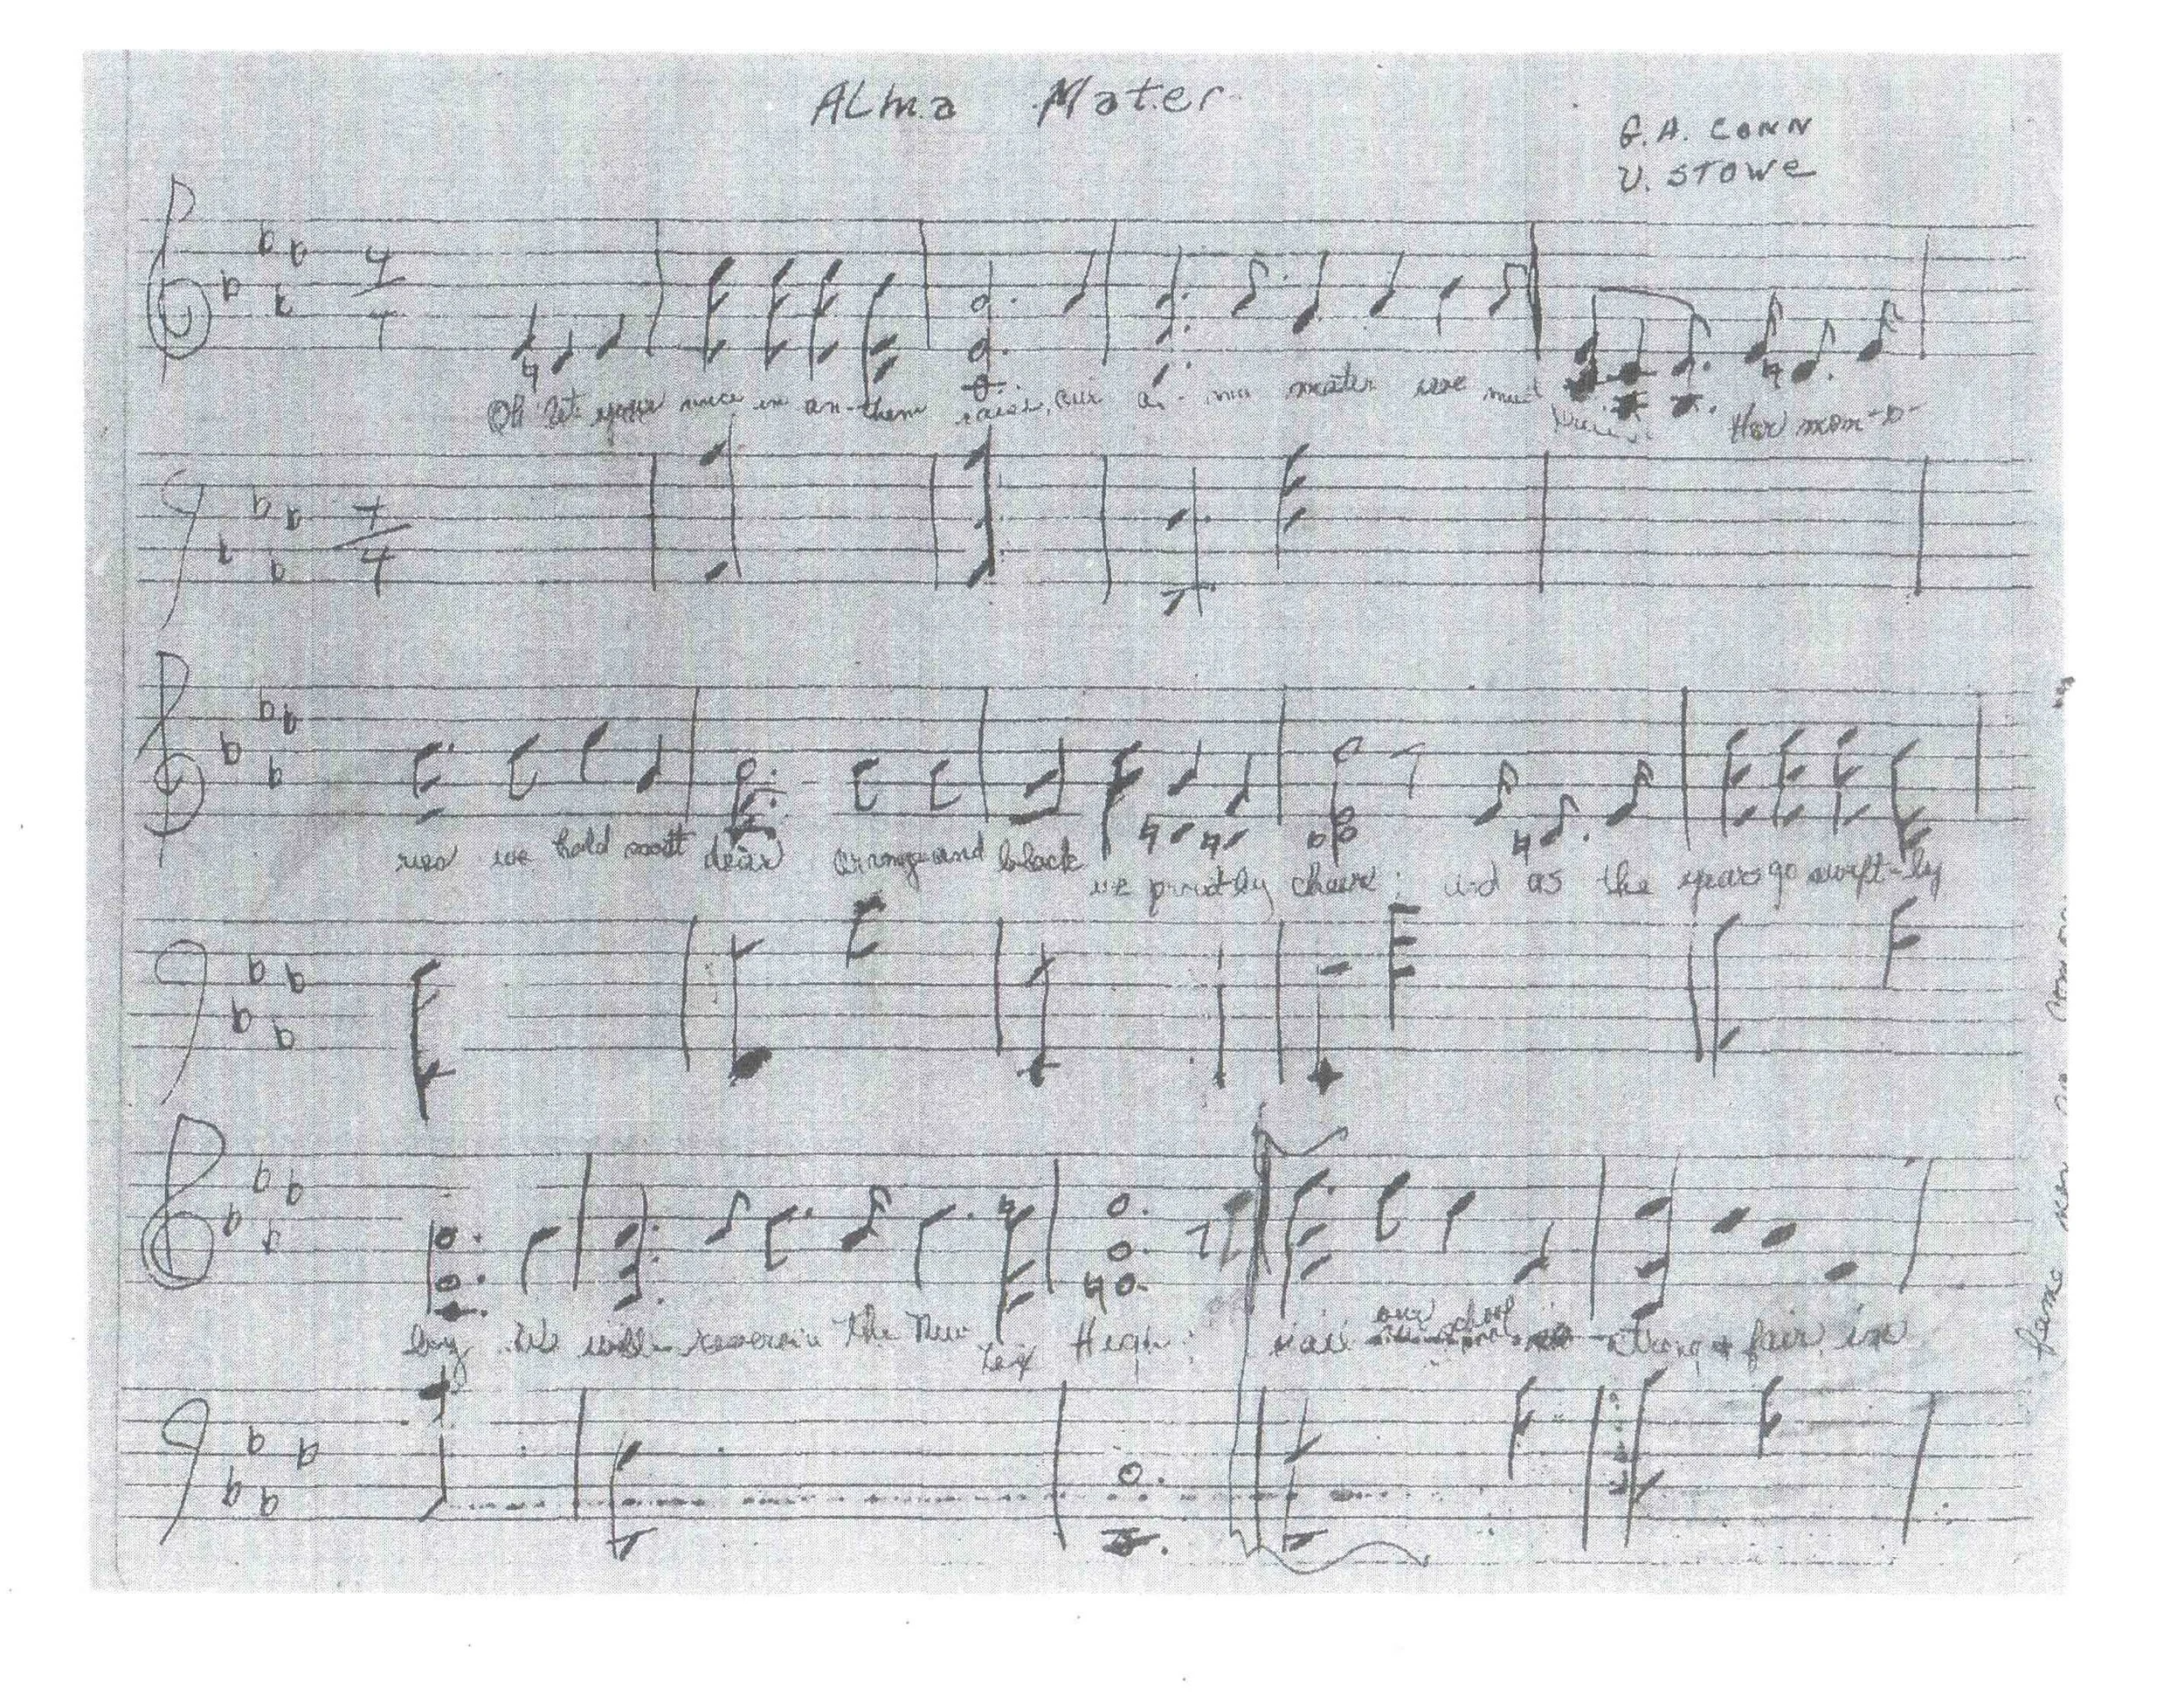 Alma Mater
G.A. CONN
V. STOWE
4
4
Oh let your voice in an-them raise, our al-ma mater we must Her mem-o-
4
4
ries we hold most dear orange and black we proud-ly cheer; and as the years go swift-ly
by We will the New Lex High; our school strong & fair, in